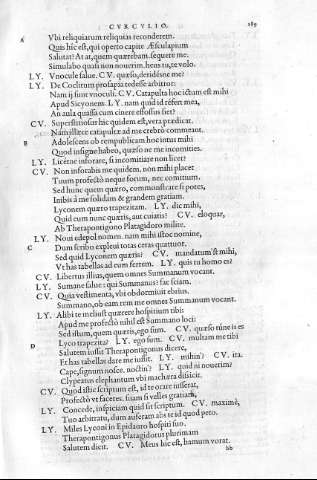 CVRCVLIO. 189
A Vbi reliquiarum reliquias reconderem.
Quis hic est, qui operto capite Æsculapium
Salutat? At at, quem quærebam. sequere me.
Simulabo quasi non nouerim. heus tu, te volo.
LY. Vnocule salue. CV. quæso, derides ne me?
LY. De Coclitum prosapia te desse arbitror:
Nam ij sunt vnoculi. CV. Catapulta hoc ictum est mihi
Apud Sicyonem. LY. nam quid id refert mea,
An aula quassa cum cinere effossus siet?
CV. Superstitiosus hic quidem est, vera prædicat.
Nam illæc catapultæ ad me crebrò commeant.
B Adolescens ob rempublicam hoc intus mihi
Quod insigne habeo, quæso ne me incomities.
LY. Licet ne inforare, si incomitiare non licet?
CV. Non inforabis me quidem. non mihi placet
Tuum profectò neque forum, nec comitium.
Sed hunc quem quæro, commonstrare si potes,
Inibis à me solidam & grandem gratiam.
Lyconem quæro trapezitam. LY. dic mihi,
Quid eum nunc quæris, aut cuiatis? CV. eloquar,
Ab Therapontigono Platagidoro milite.
LY. Noui edepol nomen. nam mihi istoc nomine,
C Dum scribo expleui totas ceras quattuor.
Sed quid Lyconem quæris? CV. mandatum st mihi,
Vt has tabellas ad eum ferrem. LY. quis tu homo es?
CV. Libertus illius, quem omnes Summanum vocant.
LY. Summane salue: qui Summanus? fac sciam.
CV. Quia vestimenta, vbi obdormiuit ebrius.
Summano, ob eam rem me omnes Summanum vocant.
LY. Alibi te meliust quærere hospitium tibi:
Apud me profectò nihil est Summano loci:
Sed istum, quem quæris, ego sum. CV. quæso túne is es
Lyco trapezita? LY. ego sum. CV. multam me tibi
D Salutem iussit Therapontigonus dicere,
Et has tabellas dare me iussit. LY. mihin'? CV. ita.
Cape, signum nosce. nostin'? LY. quid ni nouerim?
Clypeatus elephantum vbi machæra dissicit.
CV. Quod istic scriptum est, id te orare iusserat,
Profectò vt faceres. suam si velles gratiam,
LY. Concede, inspiciam quid sit scriptum. CV. maximè,
Tuo arbitratu, dum auferam abs te id quod peto.
LY. Miles Lyconi in Epidauro hospiti suo.
Therapontigonus Platagidorus plurimam
Salutem dicit. CV. Meus hic est, hamum vorat.
bb